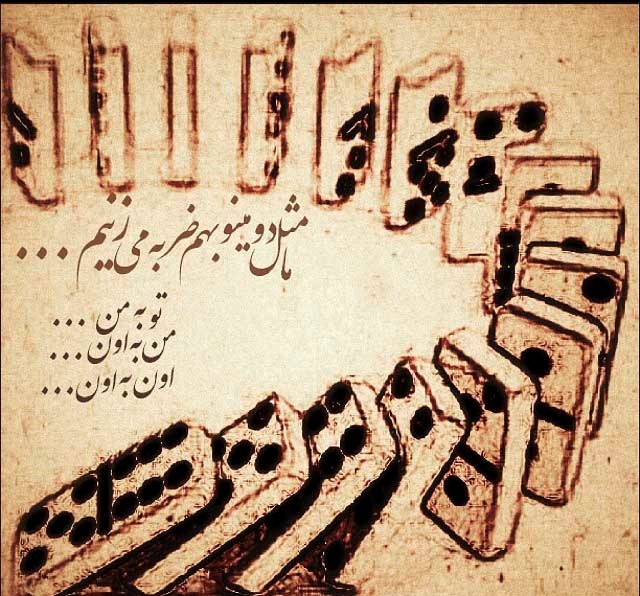 ما مثل دومینو بهم ضربه می زنیم ...
تو به من ...
من به اون ...
اون به اون ...